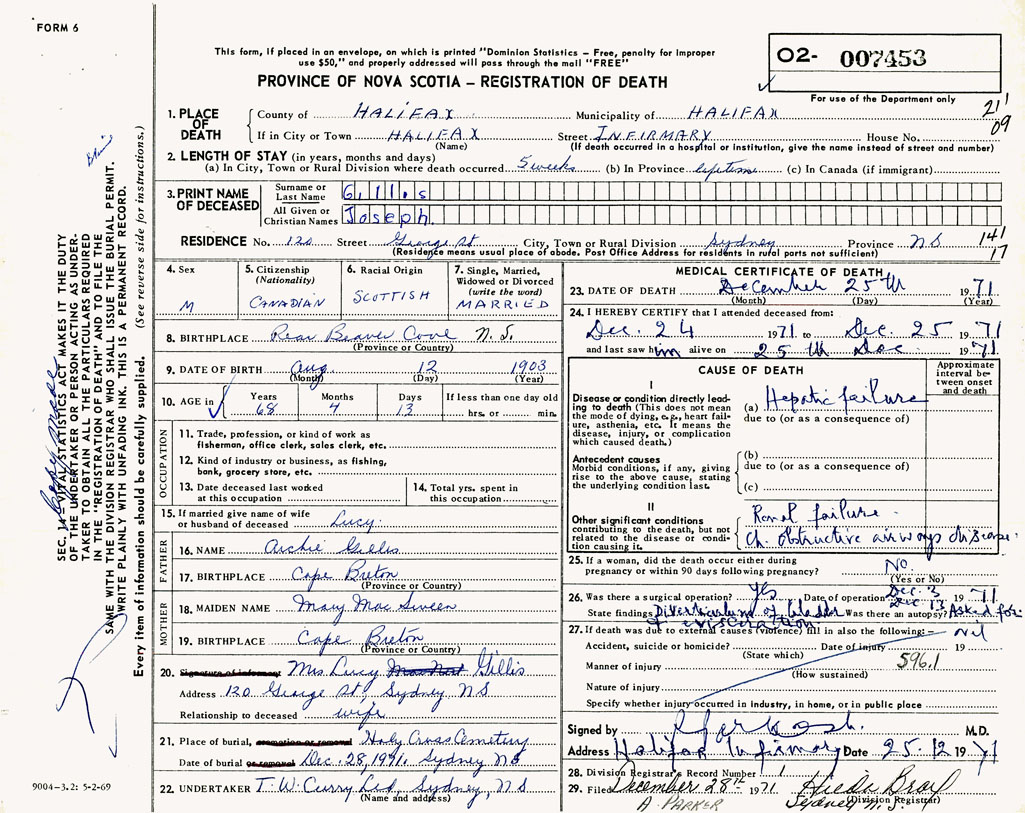 FORM 6
This form, if placed in an envelope, on which is printed "Dominion Statistics – Free, penalty for improper
use $50," and properly addressed will pass through the mail "FREE"
PROVINCE OF NOVA SCOTIA – REGISTRATION OF DEATH
02- 007453
For use of the Department only
21
09
1. PLACE OF DEATH
County of HALIFAX Municipality of HALIFAX
If in City or Town HALIFAX Street INFIRMARY House No.
(Name) (If death occurred in a hospital or institution, give the name instead of street and number)
2. LENGTH OF STAY (in years, months and days)
(a) In City, Town or Rural Division where death occurred 5 weeks (b) In Province lifetime (c) In Canada (if immigrant)
3. PRINT NAME OF DECEASED
Surname or Last Name Gillis
All Given or Christian Names Joseph
RESIDENCE No. 120 Street George St City, Town or Rural Division Sydney Province NS
(Residence means usual place of abode. Post Office Address for residents in rural parts not sufficient)
141
17
4. Sex M
5. Citizenship (Nationality) CANADIAN
6. Racial Origin SCOTTISH
7. Single, Married, Widowed or Divorced (write the word) MARRIED
8. BIRTHPLACE Rear Beaver Cove N.S.
(Province or Country)
9. DATE OF BIRTH Aug. 12 1903
(Month) (Day) (Year)
10. AGE in Years 68 Months 4 Days 13 If less than one day old
hrs. or min.
OCCUPATION
11. Trade, profession, or kind of work as
fisherman, office clerk, sales clerk, etc.
12. Kind of industry or business, as fishing,
bank, grocery store, etc.
13. Date deceased last worked
at this occupation
14. Total yrs. spent in
this occupation
15. If married give name of wife
or husband of deceased Lucy
FATHER
16. NAME Archie Gillis
17. BIRTHPLACE Cape Breton
(Province or Country)
MOTHER
18. MAIDEN NAME Mary Mac Sween
19. BIRTHPLACE Cape Breton
(Province or Country)
20. Signature of informant Mrs Lucy Gillis
Address 120 George St, Sydney, NS
Relationship to deceased wife
21. Place of burial, cremation or removal Holy Cross Cemetery
Date of burial or removal Dec. 28, 1971, Sydney NS
22. UNDERTAKER T. W. Curry Ltd, Sydney, NS
(Name and address)
MEDICAL CERTIFICATE OF DEATH
23. DATE OF DEATH December 25th 1971
(Month) (Day) (Year)
24. I HEREBY CERTIFY that I attended deceased from:
Dec. 24 1971 to Dec. 25 1971
and last saw him alive on 25th Dec 1971
CAUSE OF DEATH
Approximate interval between onset and death
I
Disease or condition directly leading
to death (This does not mean
the mode of dying, e.g., heart failure,
asthenia, etc. It means the
disease, injury, or complication
which caused death.)
(a) Hepatic failure
due to (or as a consequence of)
Antecedent causes
Morbid conditions, if any, giving
rise to the above cause, stating
the underlying condition last.
(b)
due to (or as a consequence of)
(c)
II
Other significant conditions
contributing to the death, but not
related to the disease or condition
causing it.
Renal failure
Ch. obstructive airways disease
25. If a woman, did the death occur either during
pregnancy or within 90 days following pregnancy? No
(Yes or No)
26. Was there a surgical operation? Yes Date of operation Dec. 3 1971
Dec 13
State findings Diverticulum of bladder Was there an autopsy? Asked for
evisceration
27. If death was due to external causes (violence) fill in also the following:– nil
Accident, suicide or homicide? Date of injury 19
(State which)
Manner of injury 596.1
(How sustained)
Nature of injury
Specify whether injury occurred in industry, in home, or in public place
Signed by M.D.
Address Halifax Infirmary Date 25.12 1971
28. Division Registrar's Record Number 1
29. Filed December 28th 1971
A. PARKER Sydney N.S.
(Division Registrar)
SEC. 14 – VITAL STATISTICS ACT MAKES IT THE DUTY
OF THE UNDERTAKER OR PERSON ACTING AS UNDERTAKER
TO OBTAIN ALL THE PARTICULARS REQUIRED
IN THE "REGISTRATION OF DEATH" AND TO FILE THE
SAME WITH THE DIVISION REGISTRAR WHO SHALL ISSUE THE BURIAL PERMIT.
WRITE PLAINLY WITH UNFADING INK. THIS IS A PERMANENT RECORD.
Every item of information should be carefully supplied. (See reverse side for instructions.)
9004-3.2: 5-2-69